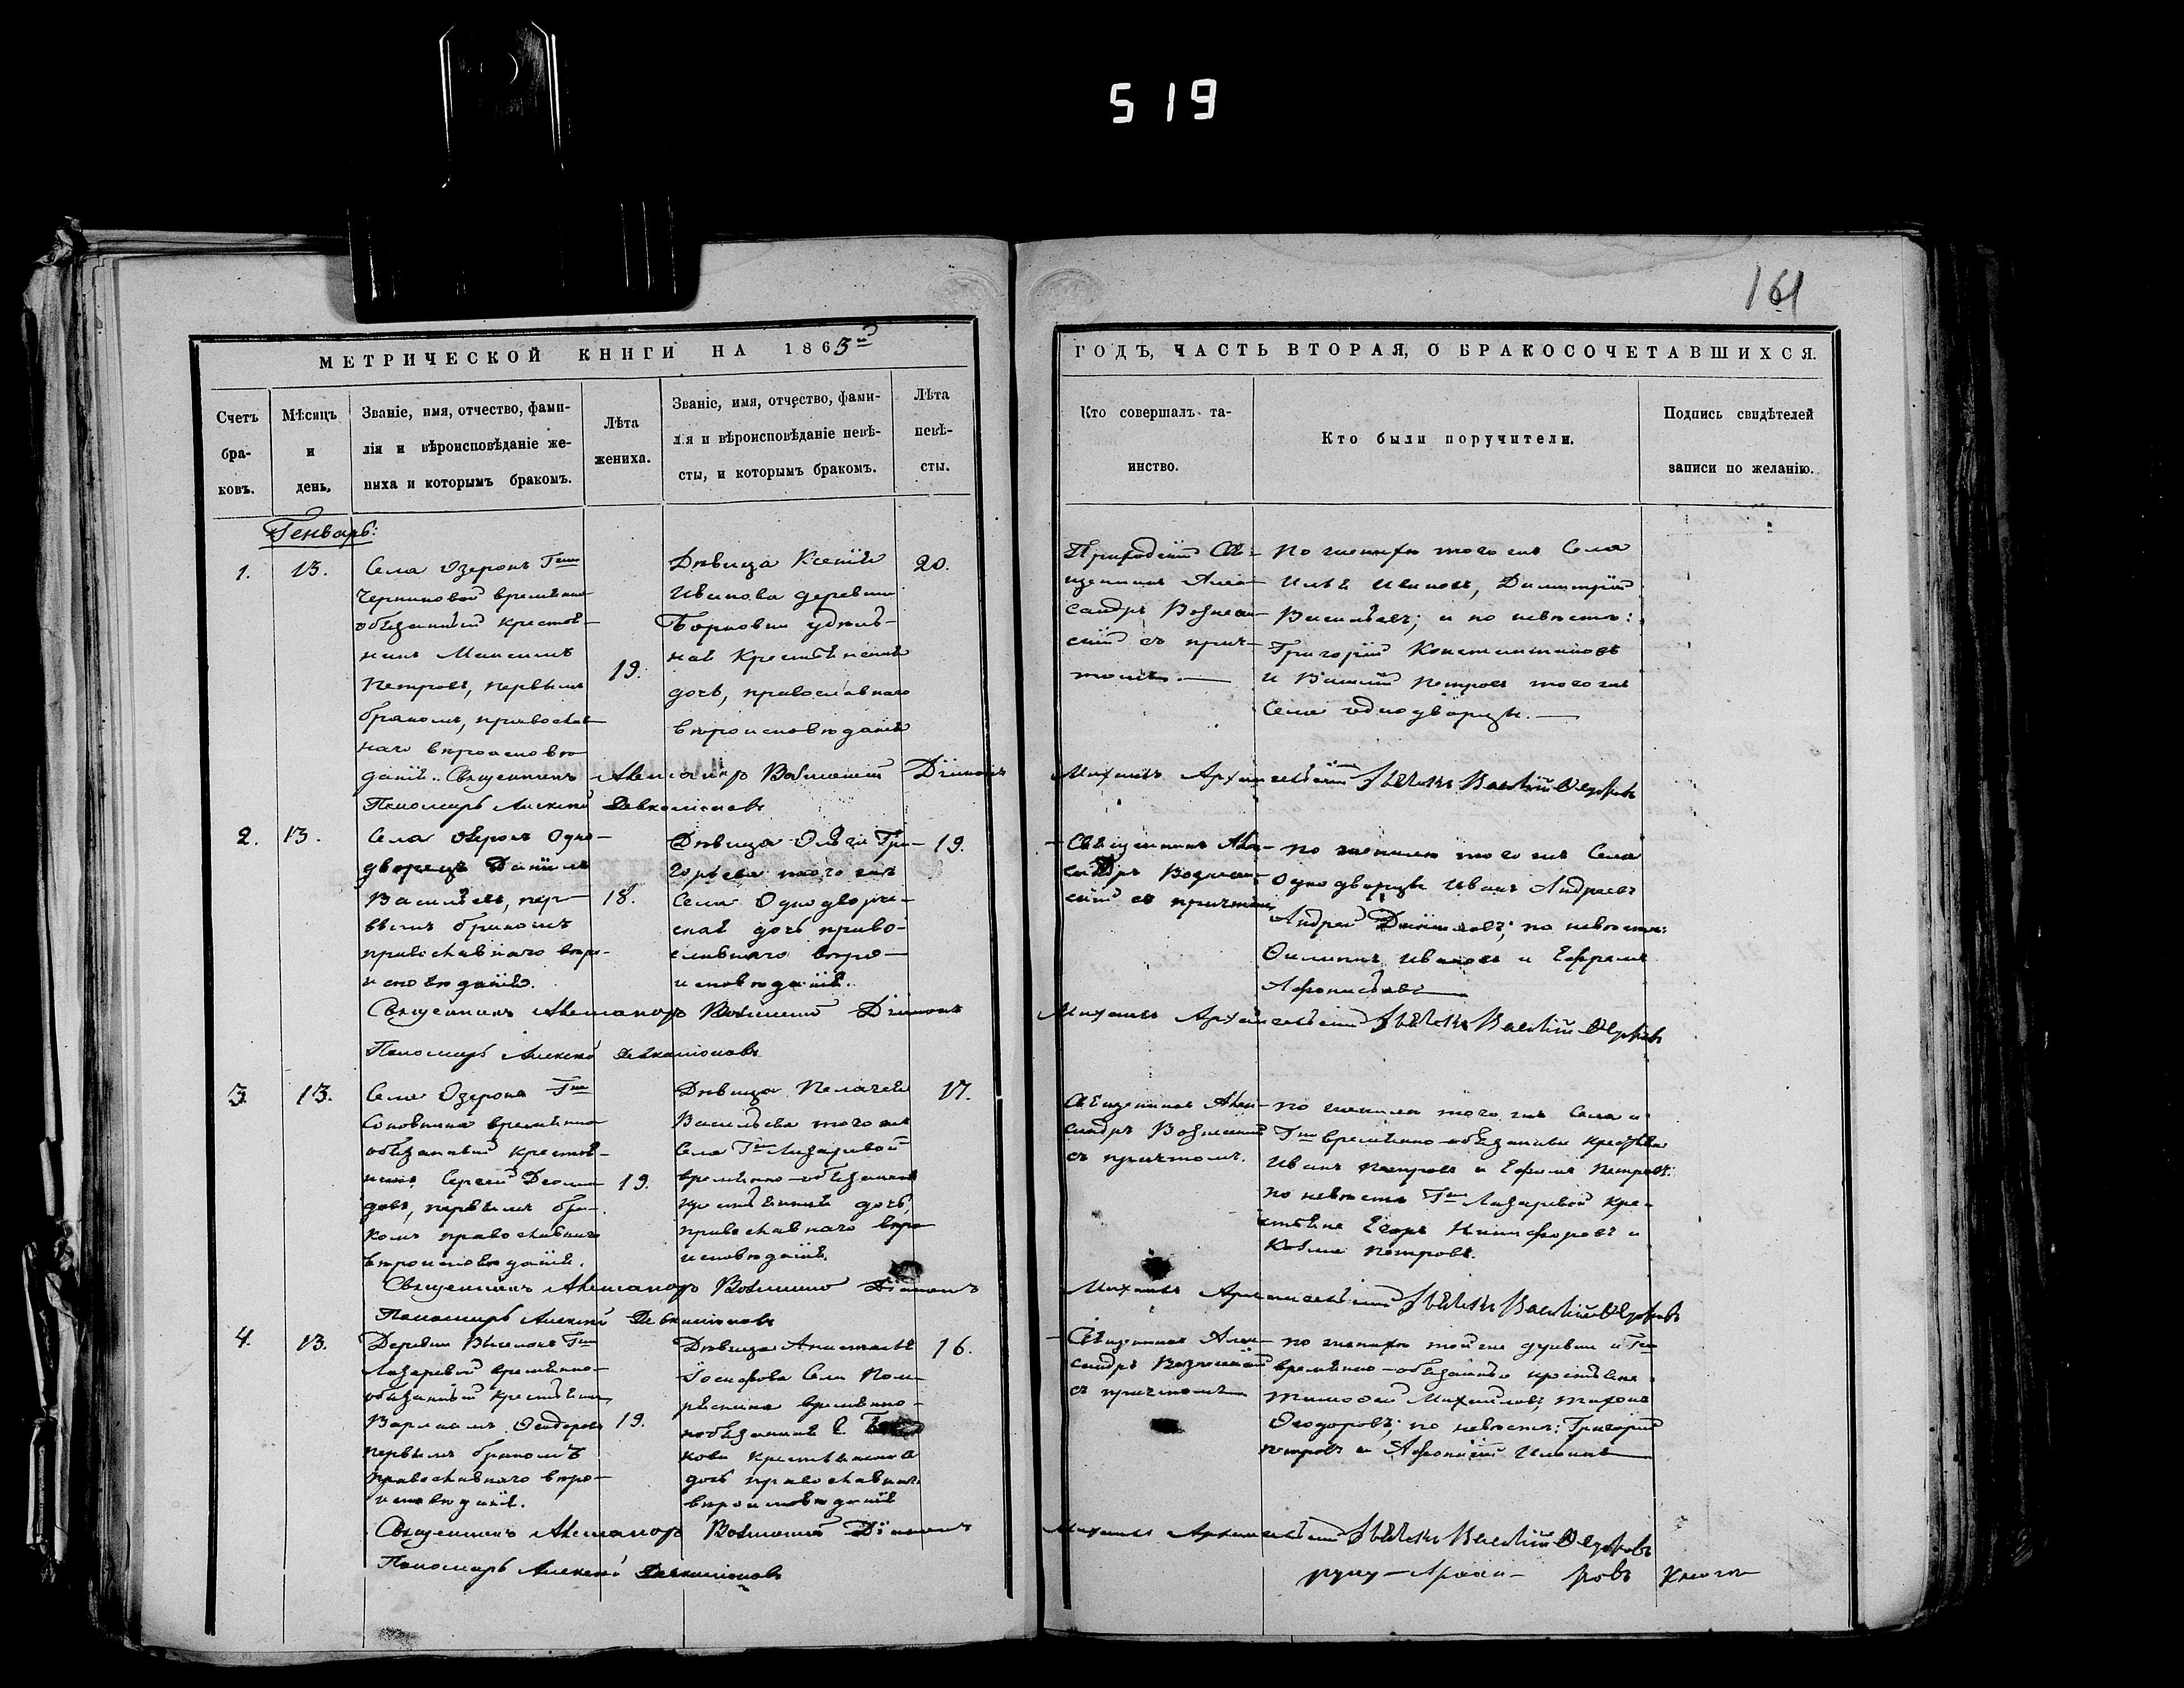 519
161
МЕТРИЧЕСКОЙ КНИГИ НА 1863й
ГОДЪ, ЧАСТЬ ВТОРАЯ, О БРАКОСОЧЕТАВШИХСЯ.
Счетъ
бра-
ковъ.
Мѣсяцъ
и
день.
Званіе, имя, отчество, фами-
лія и вѣроисповѣданіе же-
ниха и которымъ бракомъ.
Лѣта
жениха.
Званіе, имя, отчество, фами-
лія и вѣроисповѣданіе невѣ-
сты, и которымъ бракомъ.
Лѣта
невѣ-
сты.
Кто совершалъ та-
инство.
Кто были поручители.
Подпись свидѣтелей
записи по желанію.
Генварь:
1.
13.
Села Озерокъ Гжи
временно
обязанный крестья-
нинъ Максимъ
Петровъ, первымъ
бракомъ, православ-
наго вѣроисповѣ-
данія.
19.
Дѣвица Ксенія
Иванова деревни
удѣль-
ная Крестьянская
дочь, православнаго
вѣроисповѣданія
20.
Приходскій Свя-
щенникъ Алек-
сандръ Вознесен-
скій съ прич-
томъ.
По женихѣ того же Села
Илья Ивановъ, Димитрій
Васильевъ; и по невѣстѣ:
Григорій Константиновъ
и Василій Петровъ того же
Села однодворцы.
Священникъ Александръ Вознесенскій Діаконъ
Михаилъ Архангельскій Василій
Пономарь Алексей
2.
13.
Села Озерокъ Одно-
дворецъ Даніилъ
Васильевъ, пер-
вымъ бракомъ
православнаго вѣро-
исповѣданія.
18.
Дѣвица Ольга Гри-
горьева того же
Села Однодворче-
ская дочь право-
славнаго вѣро-
исповѣданія.
19.
Священникъ Алек-
сандръ Вознесен-
скій съ причтомъ
по женихѣ того же Села
Однодворцы Иванъ Андреевъ
Андрей Даниловъ; по невѣстѣ:
Филиппъ Ивановъ и Ефремъ
Афонасьевъ
Священникъ Александръ Вознесенскій Діаконъ
Михаилъ Архангельскій Василій
Пономарь Алексей
3.
13.
Села Озерокъ Гжи
временно
обязанный крестья-
нинъ Сергей
первымъ бра-
комъ православнаго
вѣроисповѣданія.
19.
Дѣвица Пелагея
Васильева того же
Села Гжи Лазаревой
временно-обязанная
крестьянская дочь,
православнаго вѣро-
исповѣданія.
17.
Священникъ Алек-
сандръ Вознесенскій
съ причтомъ.
по женихѣ того же Села и
Гжи временно-обязанные крестьяне
Иванъ Петровъ и Ефимъ Петровъ:
по невѣстѣ Гжи Лазаревой кре-
стьяне Егоръ Никифоровъ и
Козьма Петровъ.
Священникъ Александръ Вознесенскій Діаконъ
Михаилъ Архангельскій Василій
Пономарь Алексей
4.
13.
Деревни Гжи
Лазаревой временно-
обязанный крестьянинъ
Варлаамъ Феодоровъ
первымъ бракомъ
православнаго вѣро-
исповѣданія.
19.
Дѣвица Анастасія
Іосифова Села
временно-
крестьянская
дочь православнаго
вѣроисповѣданія
16.
Священникъ Алек-
сандръ Вознесенскій
съ причтомъ
по женихѣ той же деревни и Гжи
временно-обязанные крестьяне
Тимофей Михайловъ, Тихонъ
Феодоровъ; по невѣстѣ: Григорій
Петровъ и Афонасій
Священникъ Александръ Вознесенскій Діаконъ
Михаилъ Архангельскій Василій
Пономарь Алексей
руку